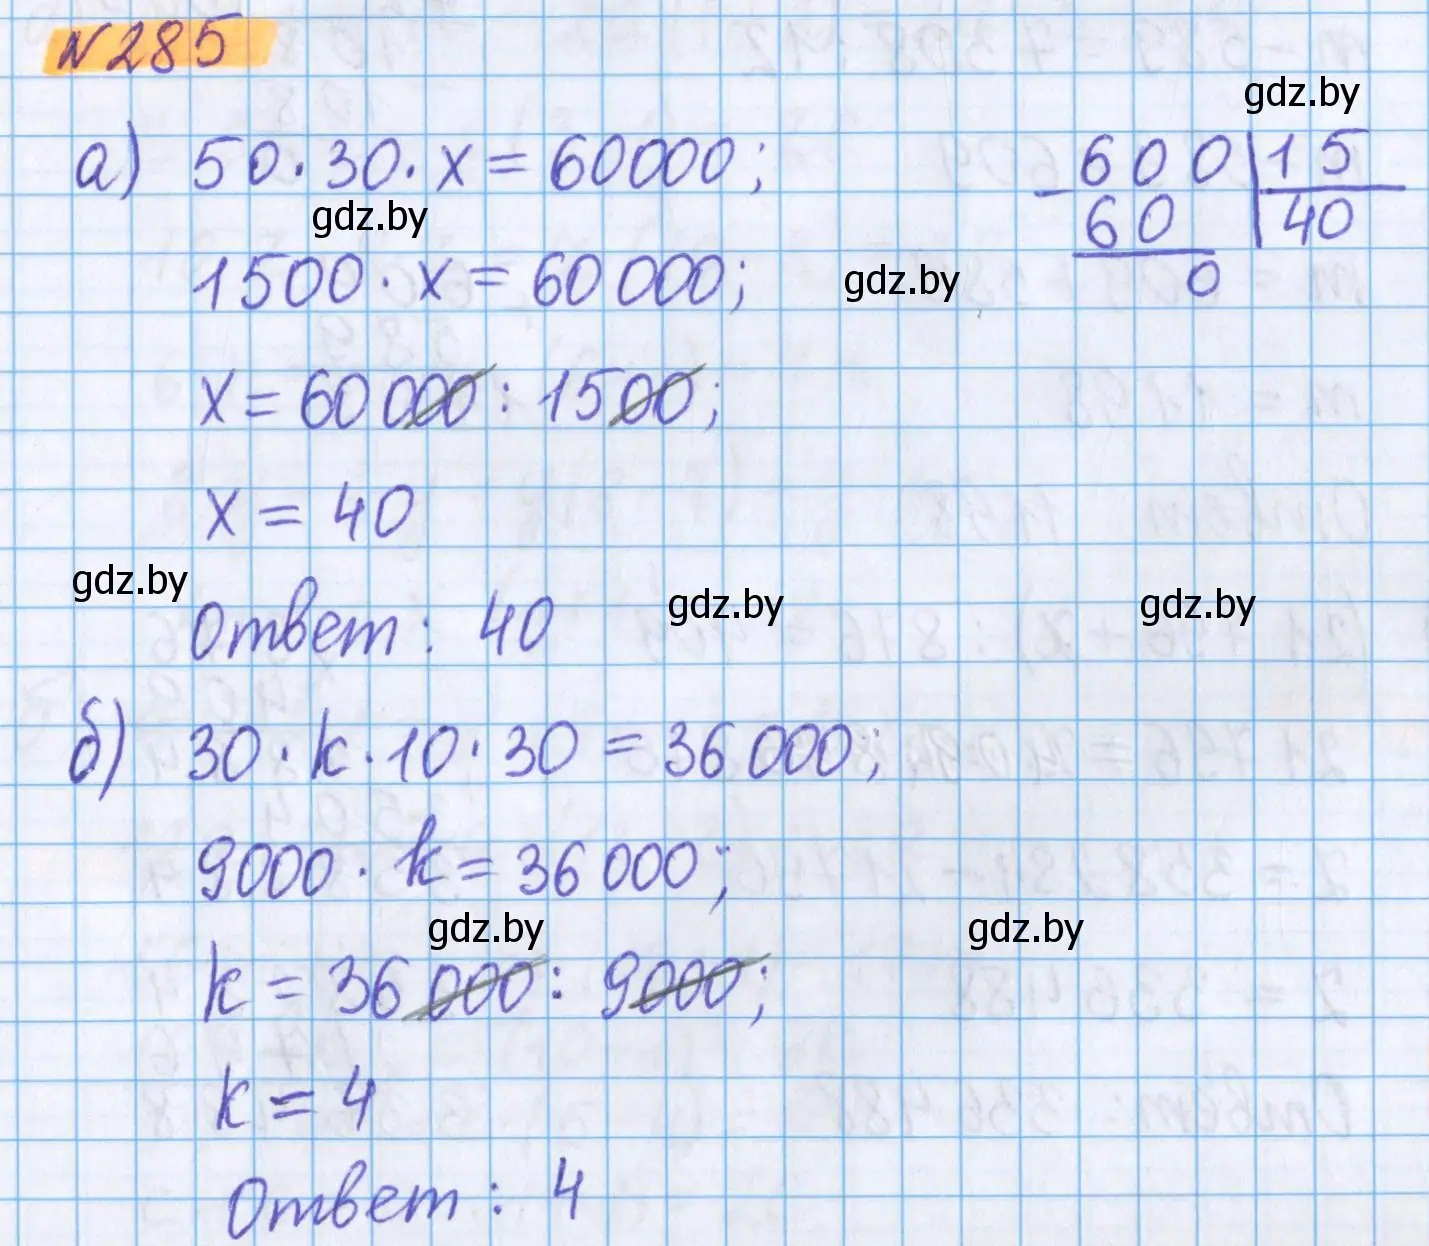 №285
gdz.by
а) 50·30·x=60000;
600 | 15
gdz.by
- 60 | 40
1500·x=60 000;
gdz.by
0
x=60 000:1500;
x=40
gdz.by
Ответ: 40
gdz.by
gdz.by
б) 30·k·10·30=36 000;
9000·k=36 000;
gdz.by
gdz.by
k=36 000:9000;
k=4
Ответ: 4